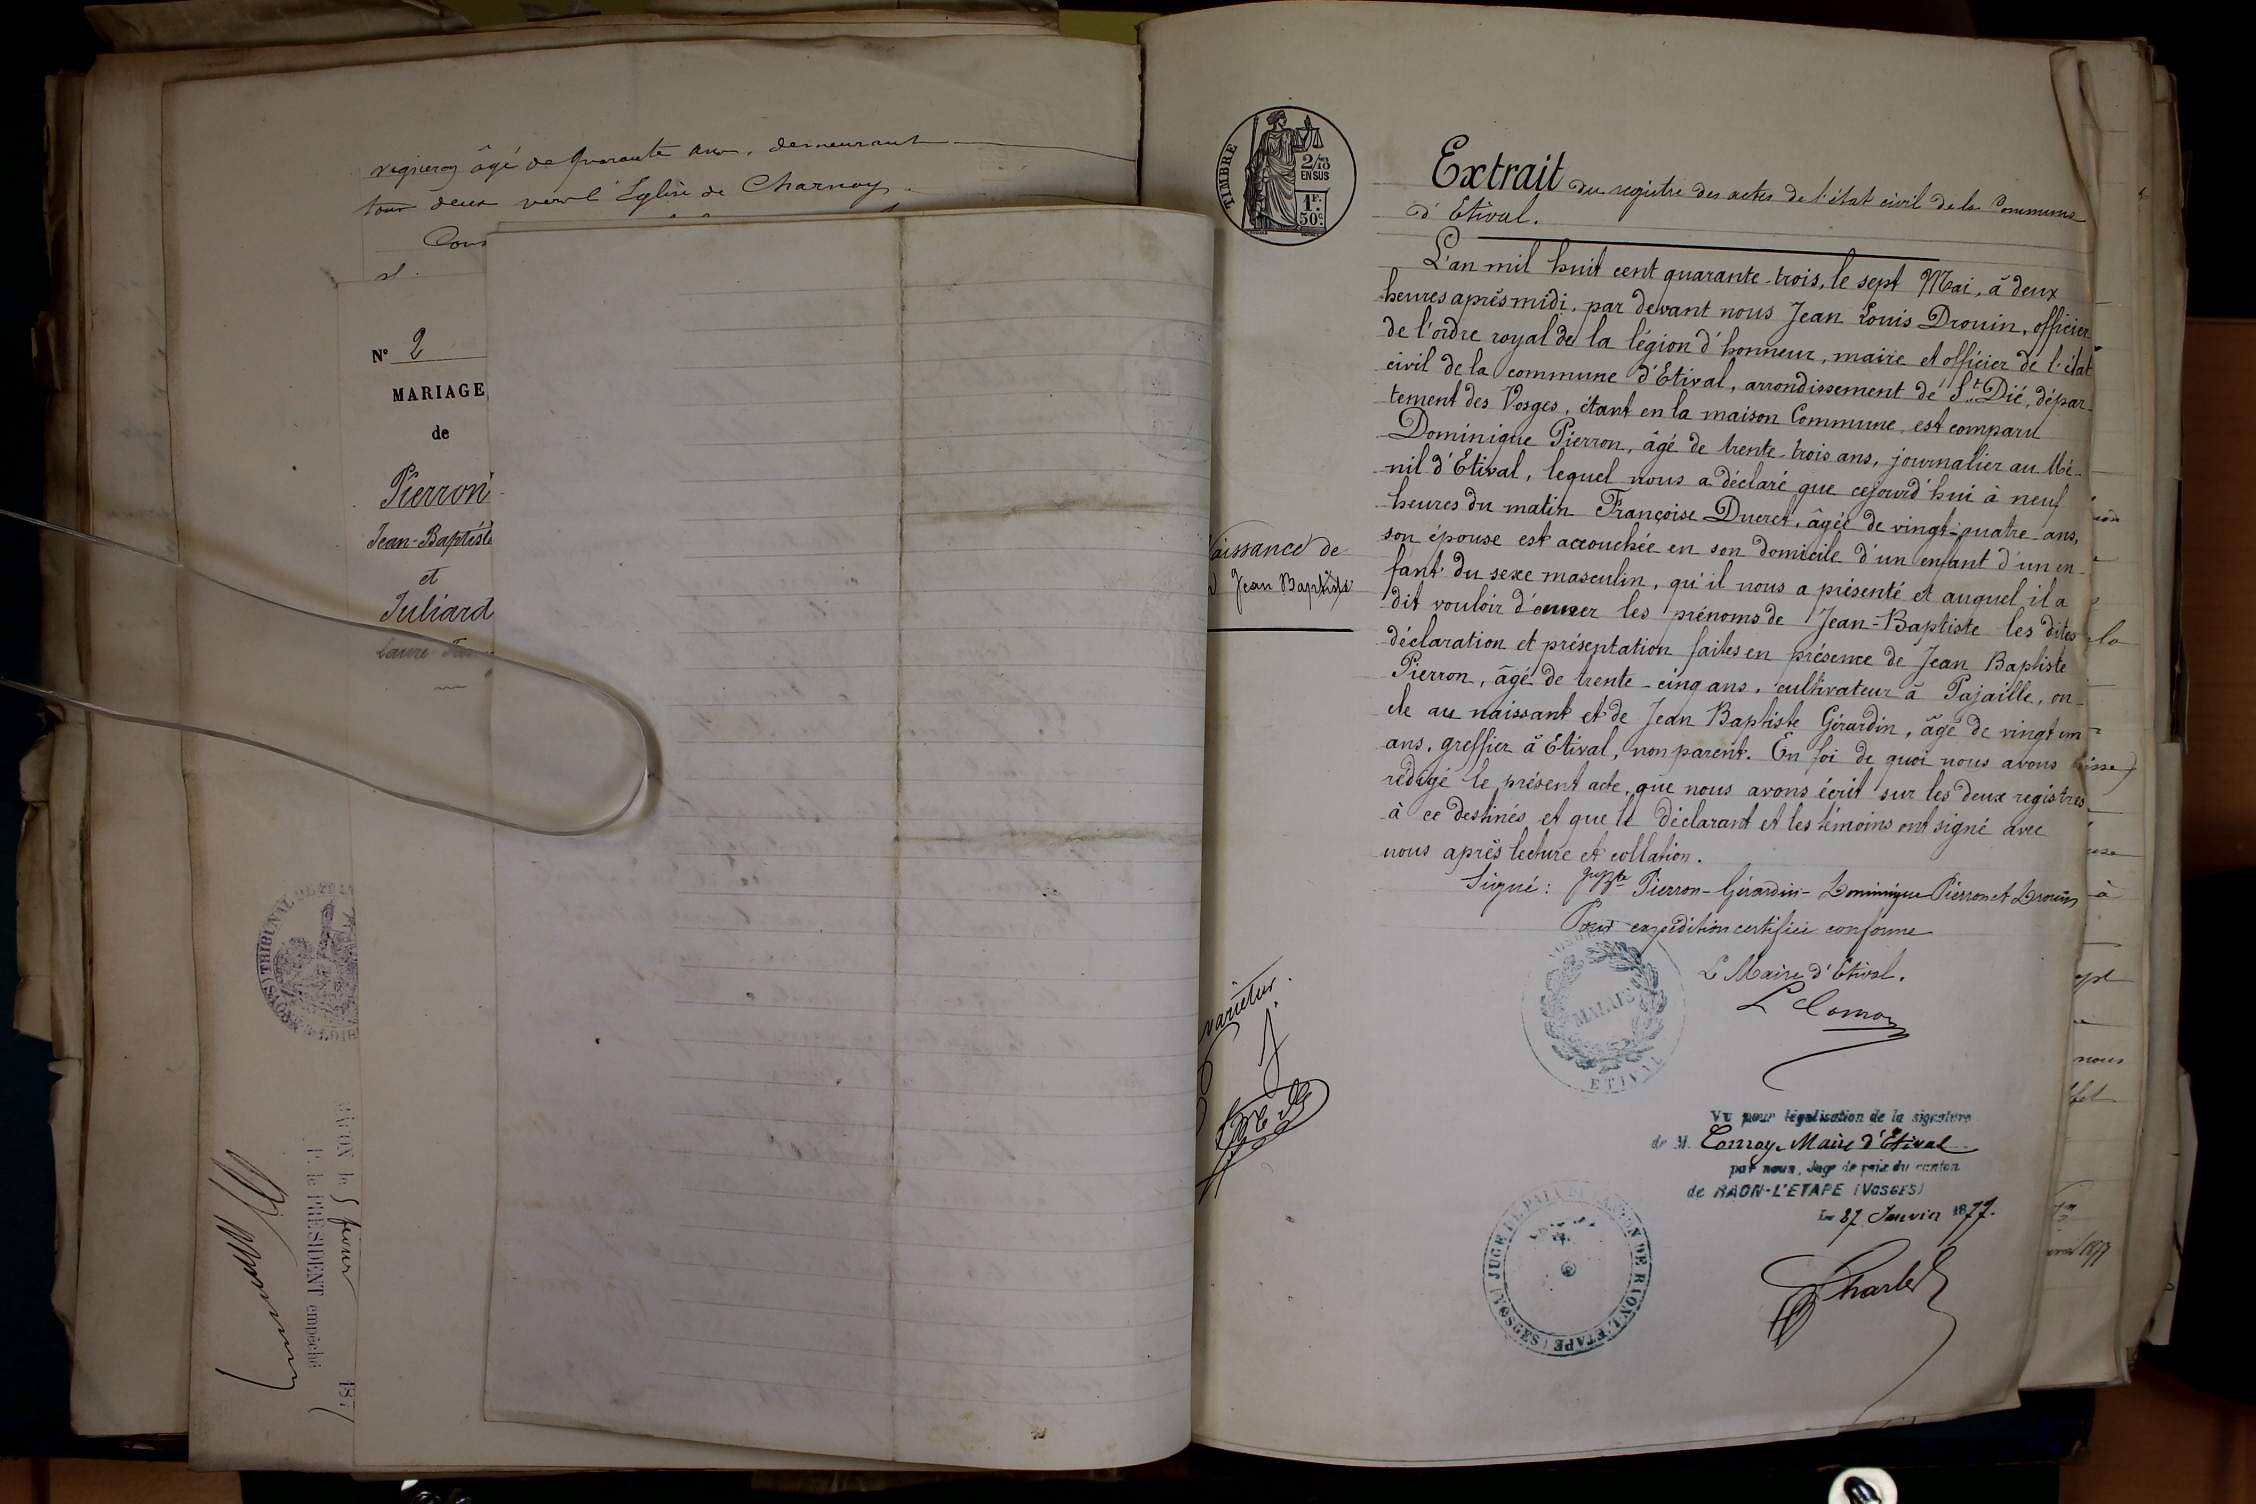 vigneron âgé de quarante ans, demeurant
tous deux vers l'Eglise de Charnay.
Cons
N° 2
MARIAGE
de
Pierron
Jean-Baptiste
et
Juliard
TRIBUNAL
MACON le 5 février 187
P. le PRESIDENT empêché
TIMBRE
2/10
EN SUS
1F.
50c.
Extrait du registre des actes de l'état civil de la Commune
d'Etival.
L'an mil huit cent quarante-trois, le sept Mai, à deux
heures après midi, par devant nous Jean Louis Drouin, officier
de l'ordre royal de la légion d'honneur, maire et officier de l'état
civil de la commune d'Etival, arrondissement de St Dié, dépar-
tement des Vosges, étant en la maison Commune, est comparu
Dominique Pierron, âgé de trente-trois ans, journalier au Mé-
nil d'Etival, lequel nous a déclaré que cejourd'hui à neuf
heures du matin Françoise Dueret, âgée de vingt-quatre ans,
son épouse est accouchée en son domicile d'un enfant d'un en-
fant du sexe masculin, qu'il nous a présenté et auquel il a
dit vouloir donner les prénoms de Jean-Baptiste les dites
déclaration et présentation faites en présence de Jean Baptiste
Pierron, âgé de trente-cinq ans, cultivateur à Pajaille, on-
cle au naissant et de Jean Baptiste Gérardin, âgé de vingt un
ans, greffier à Etival, non parent. En foi de quoi nous avons
rédigé le présent acte, que nous avons écrit sur les deux registres
à ce destinés et que le déclarant et les témoins ont signé avec
nous après lecture et collation.
Signé: Jn Bte Pierron - Gérardin - Dominique Pierron et Drouin
Pour expédition certifiée conforme
Le Maire d'Etival.
L Conroy
MAIRIE
ETIVAL
aissance de
Jean Baptiste
varietur.
Vu pour légalisation de la signature
de M. Conroy, Maire d'Etival
par nous, Juge de paix du canton
de RAON-L'ETAPE (VOSGES)
Le 27 Janvier 1877.
JUGE DE PAIX DU CANTON DE RAON L'ETAPE (VOSGES)
Charles
la
à
nous
1877